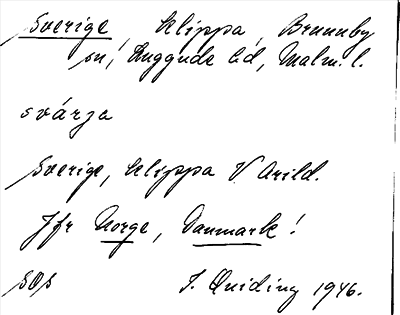 Sverige, klippa, Brunnby
sn, Luggude hd, Malm. l.
svárja
Sverige, klippa V Arild.
Jfr Norge, Danmark!
SOS J. Quiding 1946.